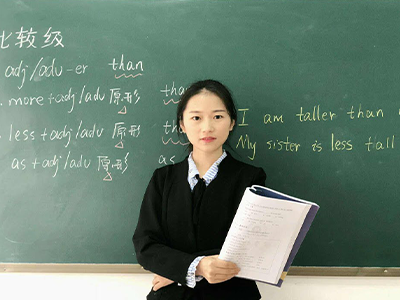 比较级
adj/adv-er than
more+adj/adv 原形 tha
less+adj/adv 原形 tha
as+adj/adv 原形 as
I am taller than
My sister is less tall